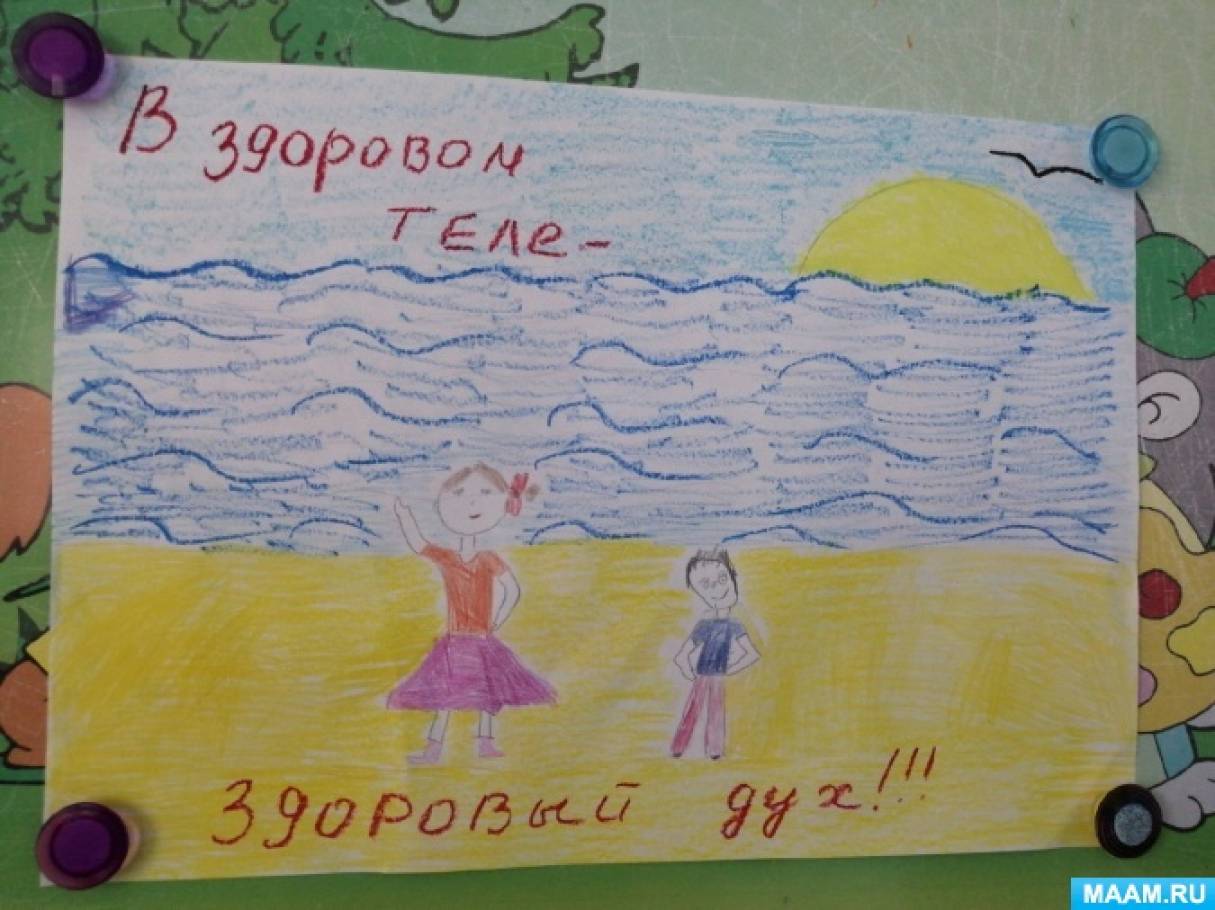 В здоровом
теле-
Здоровый дух!!!
MAAM.RU